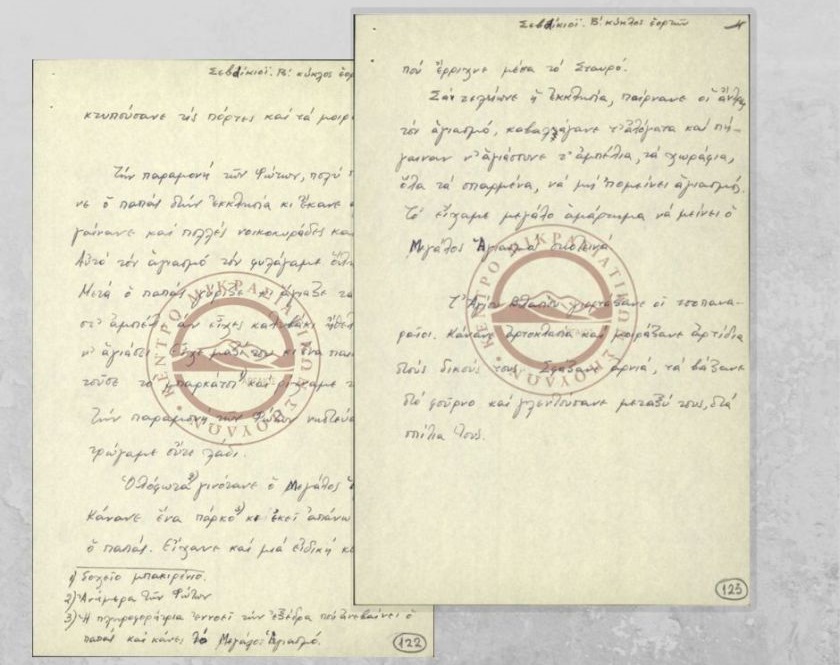 Σεβδίκιοϊ. Β! κύκλος ἑορ
κτυπούσανε τίς πόρτες καί τά μοιρ
Τήν παραμονή τῶν Φώτων, πολύ
νε ὁ παπάς στήν ἐκκλησία κι ἔκανε
γαίνανε καί πολλές νοικοκυράδες κα
Αὐτό τόν ἁγιασμό τόν φυλάγαμε
Μετά ὁ παπάς γύριζε κι ἅγιαζε τα
στ' ἀμπέλι ἄν εἶχες καλυβάκι ἤθελ
ν' ἁγιάσει. Εἶχε μαζί του κι ἕνα παι
τοῦσε τό μπαρκάτσι¹⁾ καί ρίχναμε
Τήν παραμονή τῶν Φώτων νηστεύα
τρώγαμε οὔτε λάδι.
Ὁλόφωτα²⁾ γινότανε ὁ Μεγάλος
Κάνανε ἕνα πάρκο³⁾ κι ἐκεῖ ἀπάνω
ὁ παπάς. Εἴχανε καί μιά εἰδική
1) δοχεῖο μπακιρένιο.
2) Ἀνήμερα τῶν Φώτων
3) Ἡ πληροφορήτρια ἐννοεῖ τήν ἐξέδρα πού ἀνεβαίνει ὁ
παπάς καί κάνει τό Μεγάλο Ἁγιασμό.
122
Σεβδίκιοϊ. Β! κύκλος ἑορτῶν
πού ἔρριχνε μέσα τό Σταυρό.
Σάν τελείωνε ἡ ἐκκλησία, παίρνανε οἱ ἄντρες
τόν ἁγιασμό, καβαλλάγανε τ' ἀλόγατα καί πη-
γαίναν ν' ἁγιάσουνε τ' ἀμπέλια, τά χωράφια,
ὅλα τά σπαρμένα, νά μή 'πομείνει ἁγιασμός.
Τό εἴχαμε μεγάλο ἁμάρτημα νά μείνει ὁ
Μεγάλος Ἁγιασμός
Τ' Ἁγίου Βλασίου γιορτάζανε οἱ τσοπανα-
ραῖοι. Κάνανε ἀρτοκλασία καί μοιράζανε ἀρτίδια
στούς δικούς τους. Σφάζανε ἀρνιά, τά βάζανε
στό φοῦρνο καί γλεντούσανε μεταξύ τους, στά
σπίτια τους.
123
ΚΕΝΤΡΟ ΜΙΚΡΑΣΙΑΤΙΚΩΝ ΣΠΟΥΔΩΝ
ΚΕΝΤΡΟ ΜΙΚΡΑΣΙΑΤΙΚΩΝ ΣΠΟΥΔΩΝ